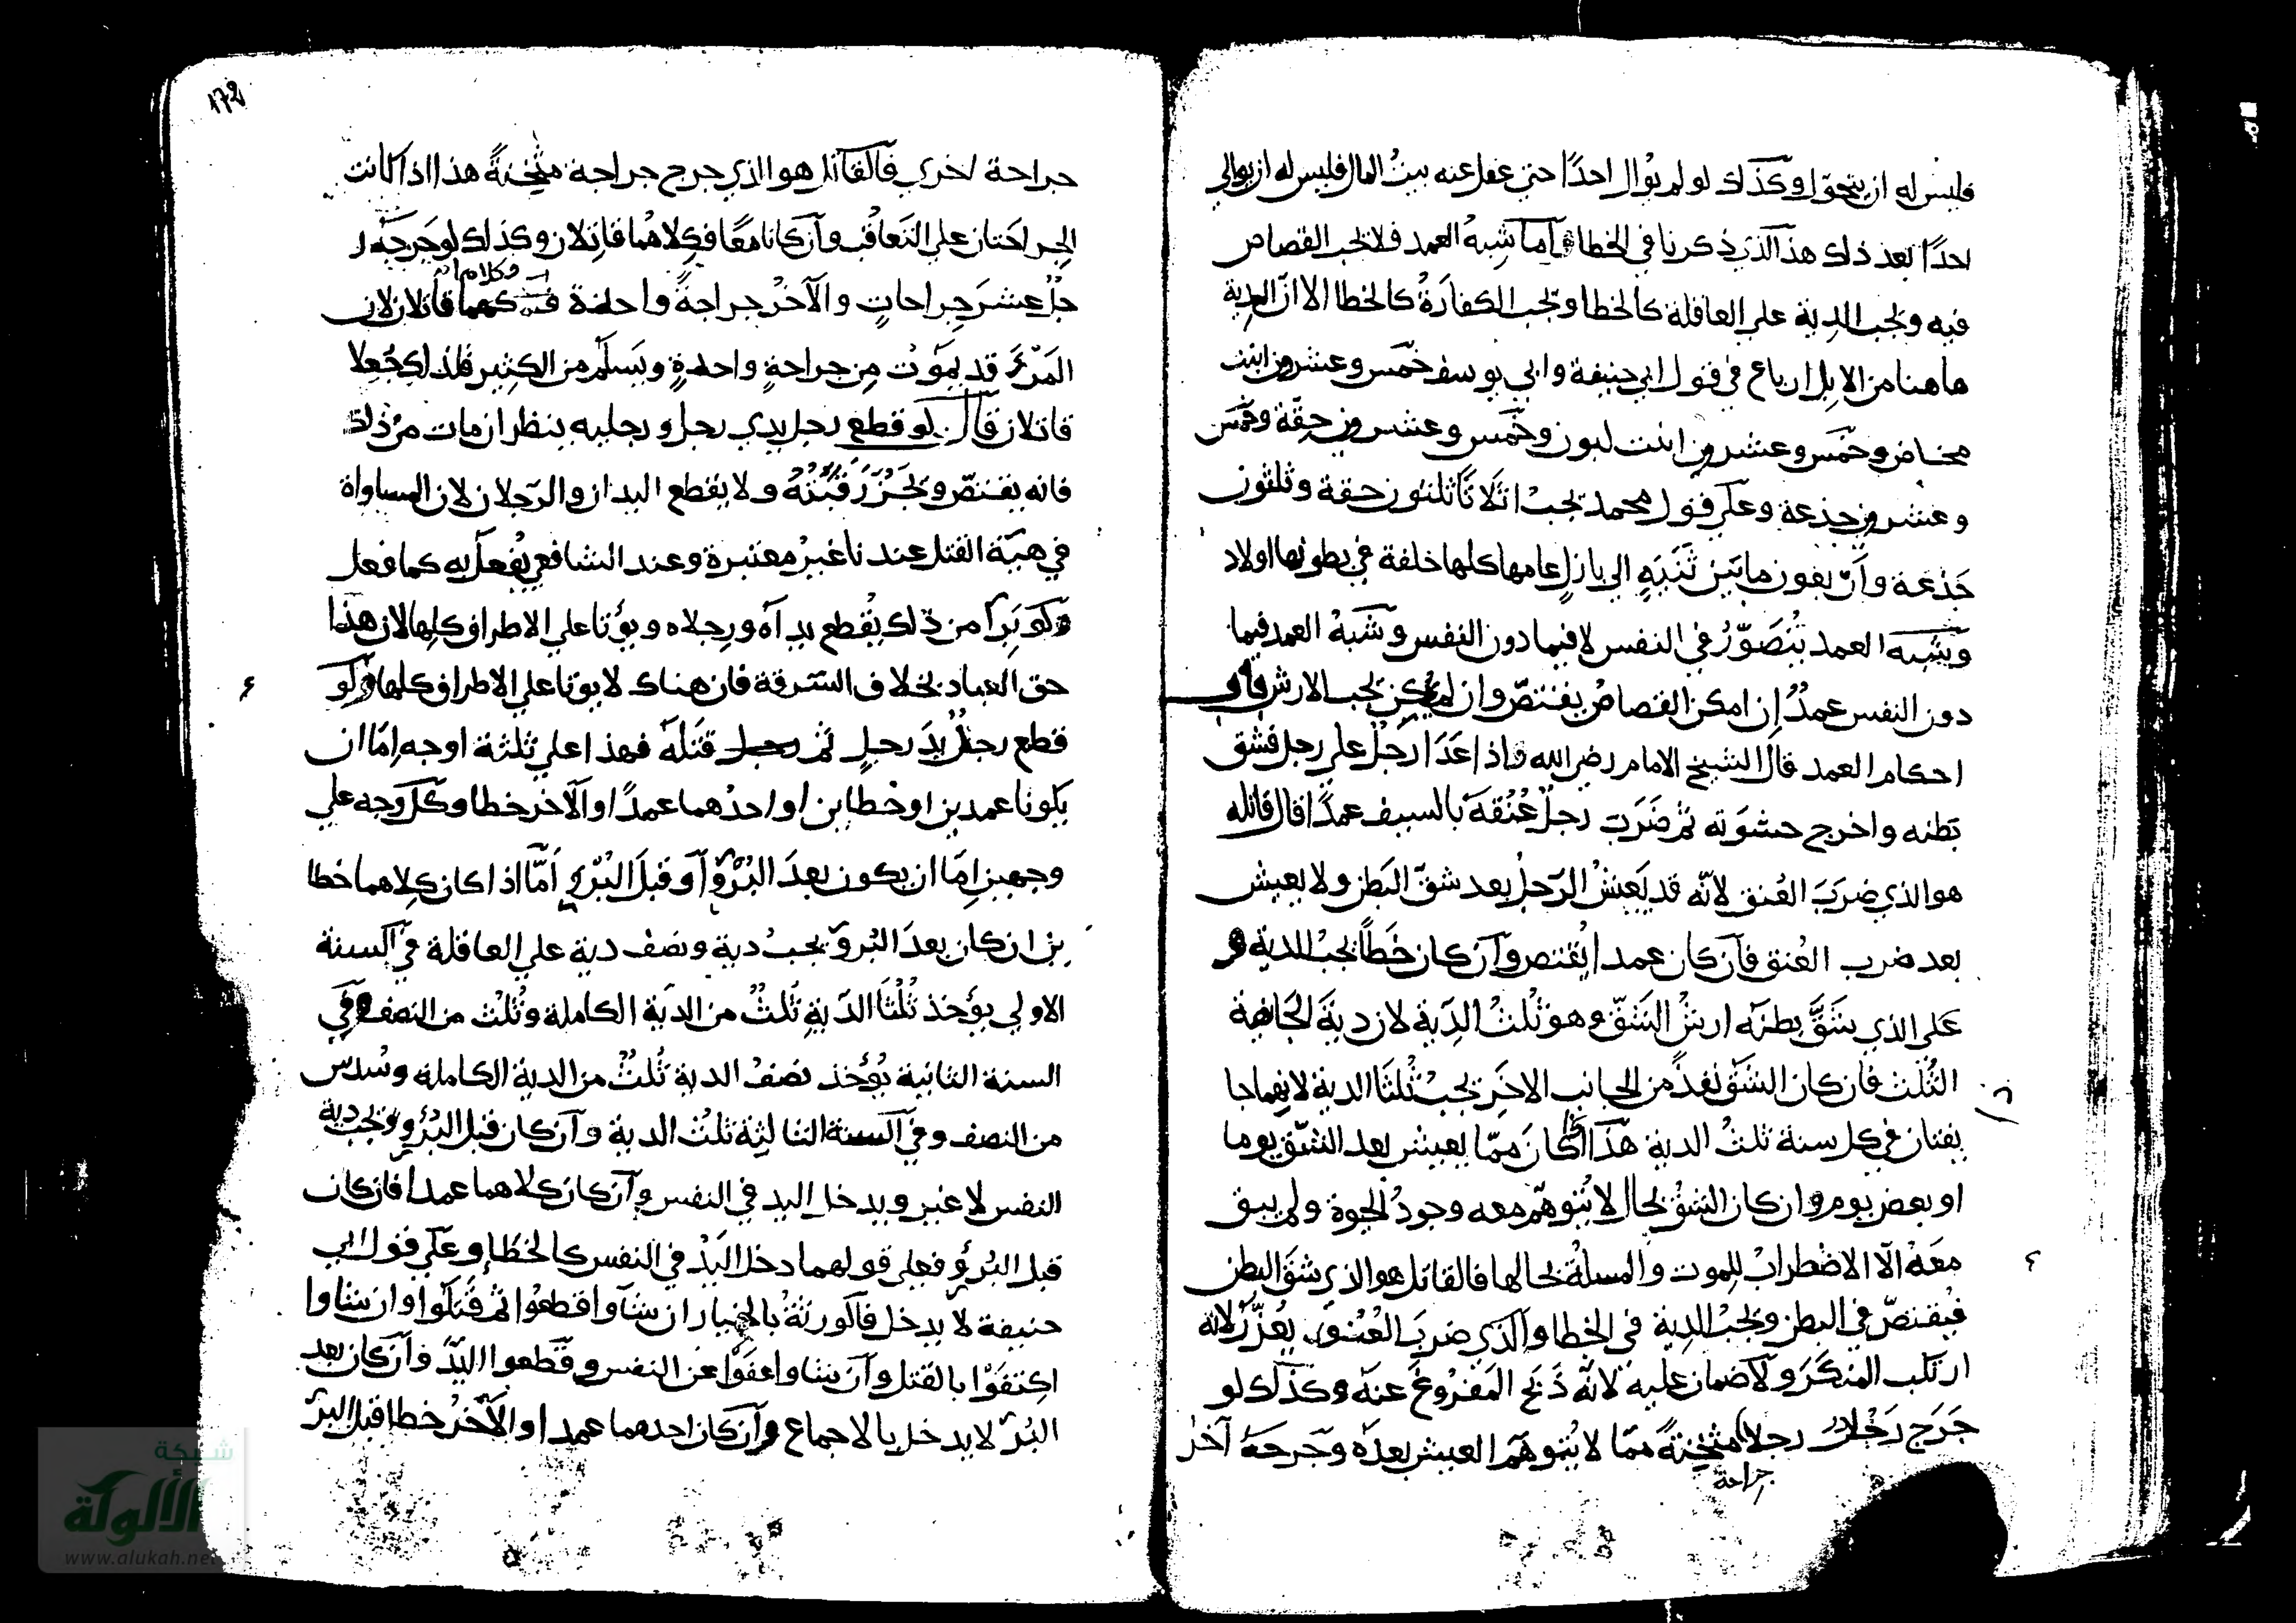 فليس له ان يتحول وكذلك لو لم يوال احدًا حتى عقل عنه بيت المال فليس له ان يوالي
احدًا بعد ذلك هذا الذي ذكرنا في الخطا واما شبه العمد فلا يجب القصاص
فيه وتجب الدية على العاقلة كالخطا وتجب الكفارة كالخطا الا ان الدية
هاهنا من الابل ارباع في قول ابي حنيفة وابي يوسف خمس وعشرون ابنت
مخاض وخمس وعشرون ابنت لبون وخمس وعشرون حقة وخمس
وعشرون جذعة وعلى قول محمد تجب اثلاثا ثلثون حقة وثلثون
جذعة واربعون مابين ثنية الى بازل عامها كلها خلفة في بطونها اولاد
وشبه العمد يتصور في النفس لا فيما دون النفس وشبه العمد فيما
دون النفس عمد ان امكن القصاص يقتص وان لم يمكن يجب الارش
احكام العمد قال الشيخ الامام رضي الله واذا عدا رجل على رجل فشق
بطنه واخرج حشوته ثم ضرب رجل عنقه بالسيف عمدا قال قاتله
هو الذي ضرب العنق لانه قد يعيش الرجل بعد شق البطن ولا يعيش
بعد ضرب العنق فان كان عمدا يقتص وان كان خطأ تجب الدية و
على الذي يشق بطنه ارش الشق وهو ثلث الدية لان دية الجائفة
الثلث فان كان الشق نفذ من الجانب الاخر يجب ثلثا الدية لانهما جا
يفتان في كل سنة ثلث الدية هذا اذا كان مما يعيش بعد الشق يوما
او بعض يوم وان كان الشق بحال لا يتوهم معه وجود الحيوة ولم يبق
معه الا الاضطراب للموت والمسلة بحالها فالقاتل هو الذي شق البطن
فيقتص في البطن وتجب الدية في الخطا والذي ضرب العنق يعزر لانه
ارتكب المنكر ولا ضمان عليه لانه ذبح المفروغ عنه وكذلك لو
جرح رجل رجلا مثخنة مما لا يتوهم العيش بعده وجرحه آخر
جراحة
١٧٢
جراحة اخرى فالقاتل هو الذي جرح جراحة مثخنة هذا اذا كانت
الجراحتان على التعاقب وان كانا معا فكلاهما قاتلان وكذلك لو جرحه ر
جل عشر جراحات والآخر جراحة واحدة فكلاهما قاتلان لان
المرء قد يموت من جراحة واحدة ويسلم من الكثير فلذلك جعلا
قاتلان قال لو قطع رجل يدي رجل ورجليه ينظر ان مات من ذلك
فانه يقتص وتجز رقبته ولا يقطع اليدان والرجلان لان المساواة
في هية القتل عندنا غير معتبرة وعند الشافعي يفعل به كما فعل
ولو برا من ذلك يقطع يداه ورجلاه ويوتا على الاطراف كلها لان هذا
حق العباد بخلاف السرقة فان هناك لا يوتا على الاطراف كلها ولو
قطع رجل يد رجل ثم قتله فهذا على ثلثة اوجه اما ان
يكونا عمدين او خطاين او احدهما عمدا او الآخر خطا وكل وجه على
وجهين اما ان يكون بعد البرؤ او قبل البرؤ اما اذا كان كلاهما خطا
ين ان كان بعد البرو يجب دية ونصف دية على العاقلة في السنة
الاولى يؤخذ ثلثا الدية ثلث من الدية الكاملة وثلث من النصف وفي
السنة الثانية يؤخذ نصف الدية ثلث من الدية الكاملة وسدس
من النصف وفي السنة الثالثة ثلث الدية وان كان قبل البرؤ يجب دية
النفس لا غير ويدخل اليد في النفس وان كان كلاهما عمدا فان كان
قبل البرؤ فعلى قولهما دخل اليد في النفس كالخطا وعلى قول ابي
حنيفة لا يدخل فالورثة بالخيار ان شاوا قطعوا ثم قتلوا وان شاوا
اكتفوا بالقتل وان شاوا عفوا عن النفس وقطعوا اليد وان كان بعد
البرؤ لا يدخل بالاجماع وان كان احدهما عمدا او الآخر خطا قبل البرؤ
شبكة
الألوكة
www.alukah.net